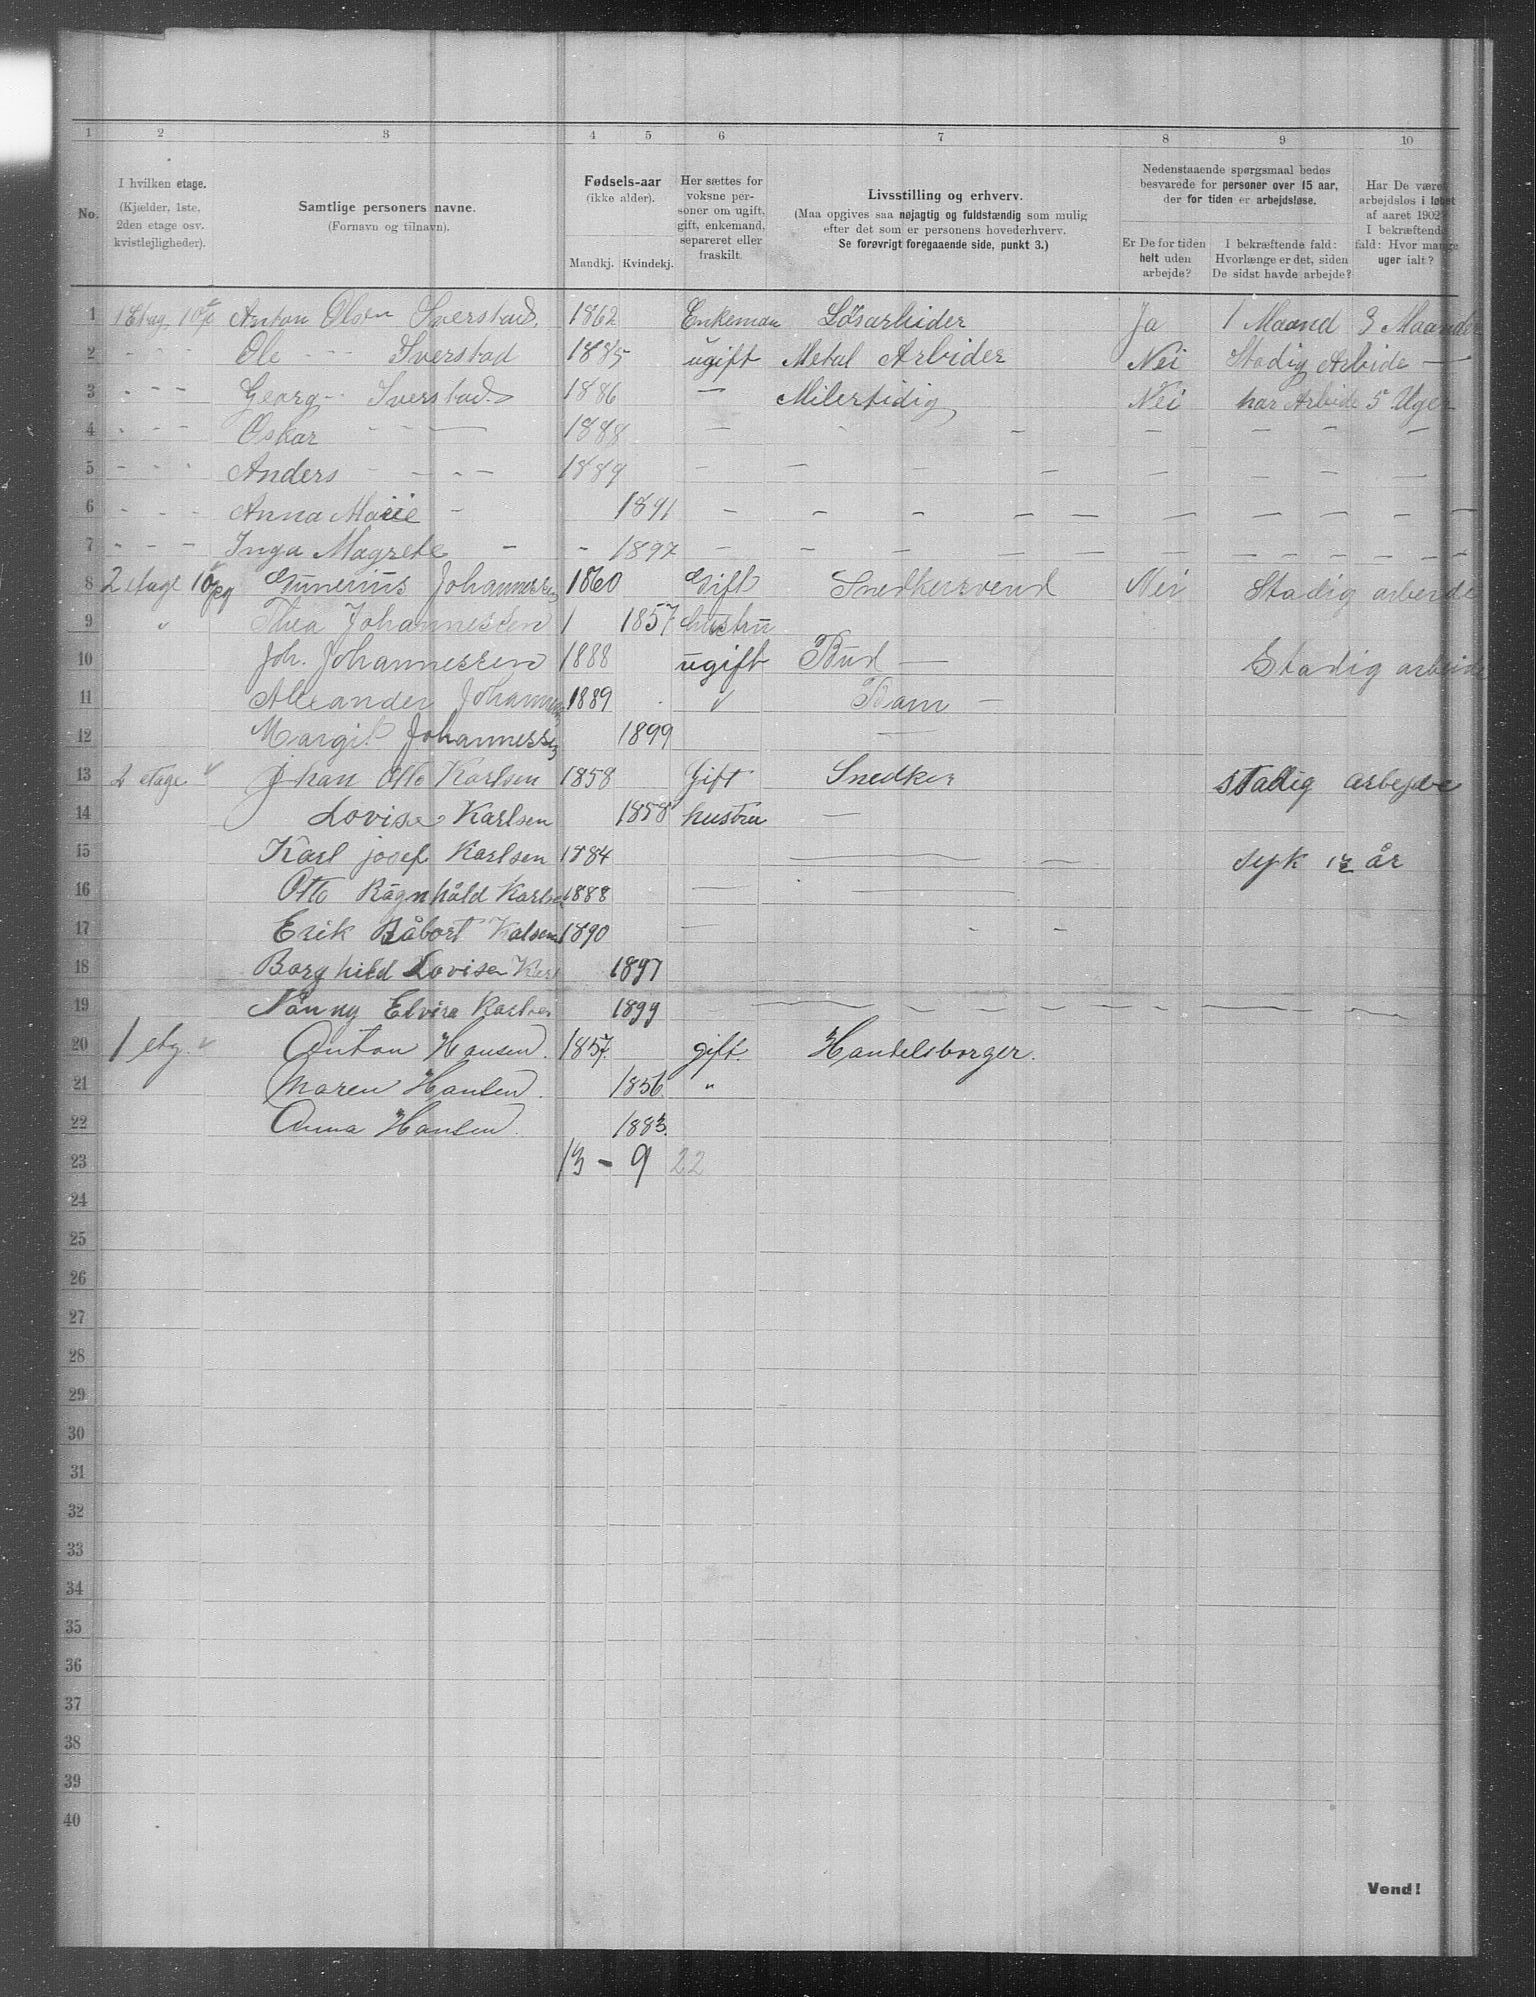 1 2 3 4 5 6 7 8 9 10
No.
I hvilken etage.
(Kjælder, 1ste,
2den etage osv.
kvistlejligheder).
Samtlige personers navne.
(Fornavn og tilnavn).
Fødsels-aar
(ikke alder).
Mandkj. Kvindekj.
Her sættes for
voksne per-
soner om ugift,
gift, enkemand,
separeret eller
fraskilt.
Livsstilling og erhverv.
(Maa opgives saa nøjagtig og fuldstændig som mulig
efter det som er personens hovederhverv.
Se forøvrigt foregaaende side, punkt 3.)
Nedenstaaende spørgsmaal bedes
besvarede for personer over 15 aar,
der for tiden er arbejdsløse.
Er De for tiden
helt uden
arbejde?
I bekræftende fald:
Hvorlænge er det, siden
De sidst havde arbejde?
Har De været
arbejdsløs i løbet
af aaret 1902?
I bekræftende
fald: Hvor mange
uger ialt?
1 1 Etag. Anton Olsen Sverstad. 1862 Enkeman Løsarbeider Ja 1 Maand 3 Maander
2 - - - Ole - - Sverstad 1885 ugift Metal Arbider Nei Stadig Arbide —
3 - - - Georg - - Sverstad 1886 — Milertidig Nei har Arbide 5 Uger
4 - - - Oskar - - - 1888 — - — — — — —
5 - - - Anders - - - - 1889 — — — — — — —
6 - - - Anna Marie - 1891 — — — — — — — — —
7 - - - Inga Magrete - - 1897 — — — — — — — — —
8 2 etage Gunerius Johannessen 1860 Gift Snedkersvend Nei Stadig arbeide
9 Thea Johannessen 1 1857 hustru
10 Joh. Johannessen 1888 ugift Bud — Stadig arbeide
11 Alexander Johannes 1889 Barn —
12 Margit Johannessen 1899 —
13 2 etage Johan Otto Karlsen 1858 Gift Snedker stadig arbejde
14 Lovise Karlsen 1858 hustru —
15 Karl josef Karlsen 1884 — — syk år
16 Otto Ragnhåld Karlsen 1888 — —
17 Erik Råbort Kalsen 1890 — - -
18 Borghild Lovise Karl 1897
19 Nanny Elvira Karlsen 1899
20 1 etg. Anton Hansen. 1857 gift. Handelsborger.
21 Maren Hansen. 1856. "
22 Anna Hansen. 1883.
23 13 - 9 22
24
25
26
27
28
29
30
31
32
33
34
35
36
37
38
39
40
Vend!